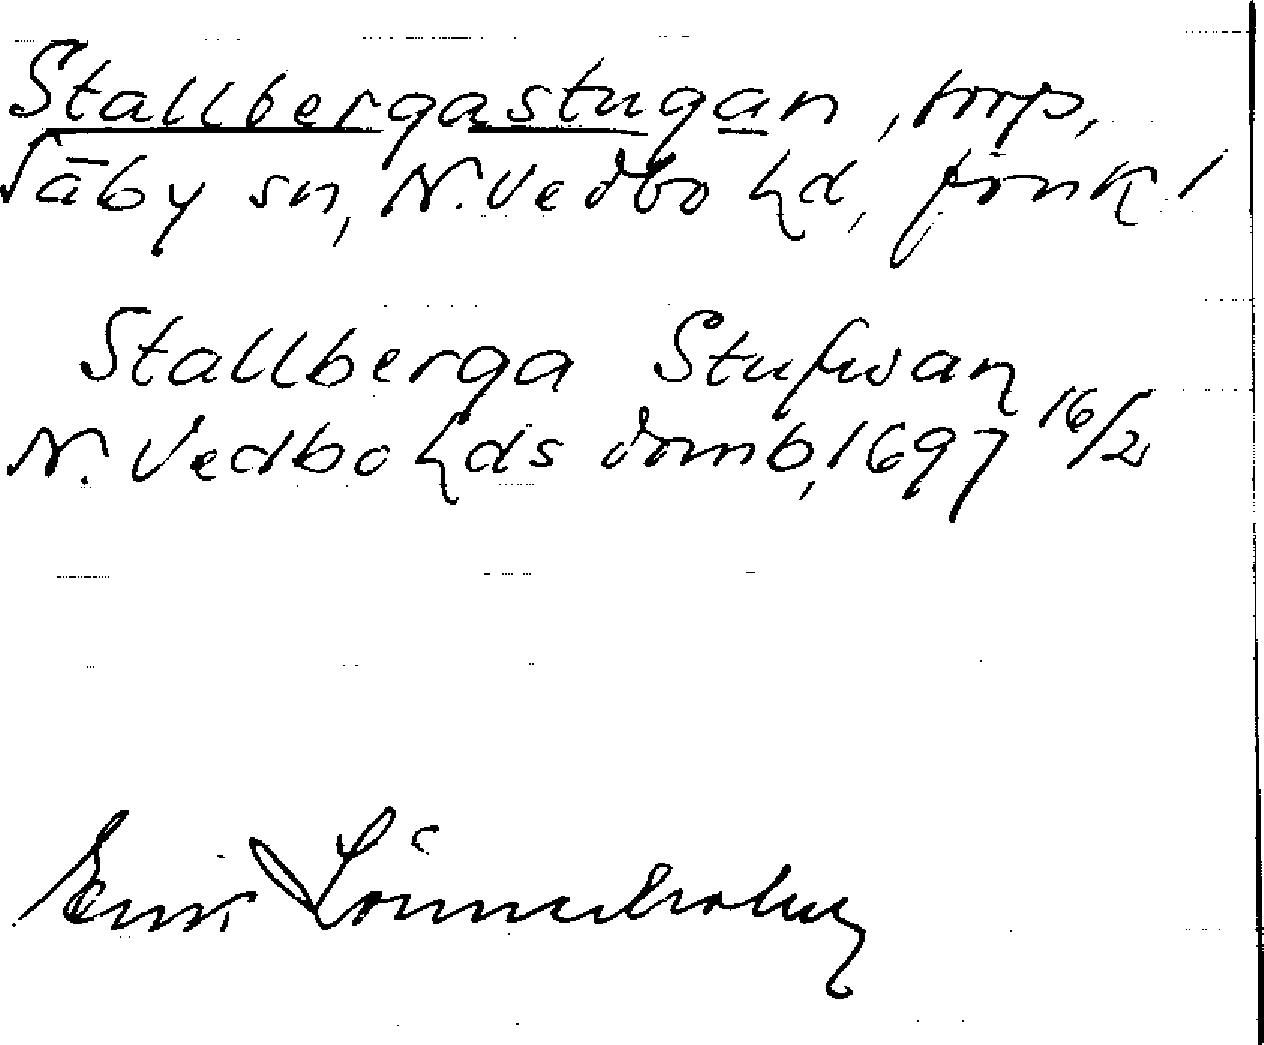 Stallbergastugan, torp,
Säby sn, N. Vedbo hd, Jönk l
Stallberga Stufwan
N. Vedbo hds domb, 1697 16/2
Lönnerholm